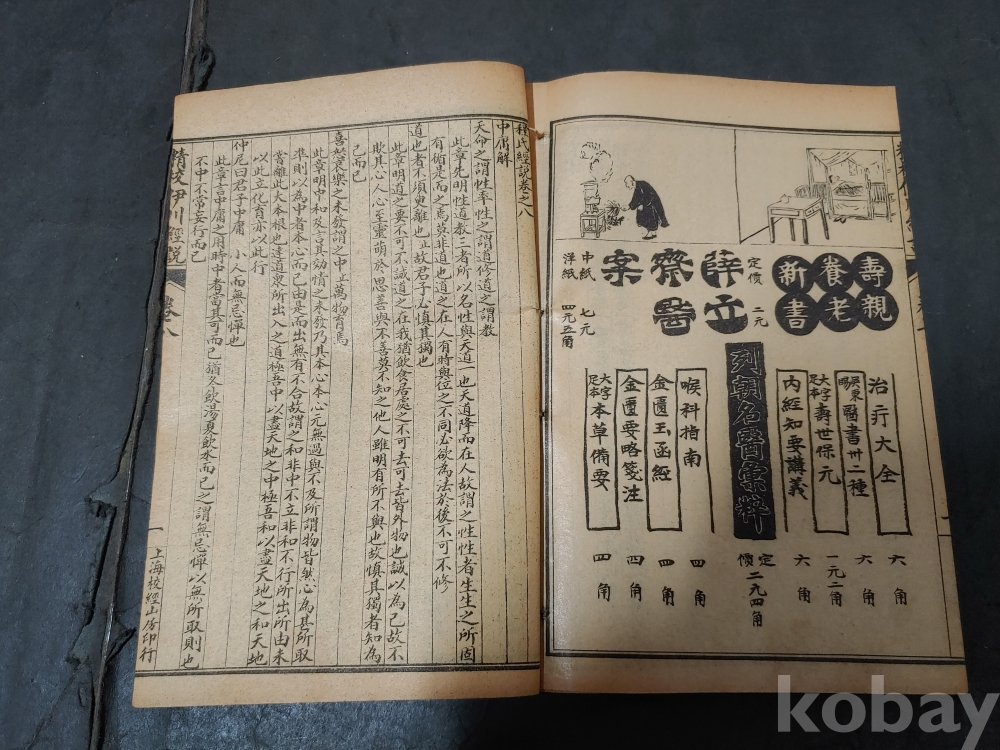 壽親養老新書
定價 二元
薛立齋醫案
中紙 七元
洋紙 四元五角
治疔大全 六角
醫書卅二種 六角
大字足本壽世保元 一元二角
內經知要講義 六角
列朝名醫彙粹 定價二元四角
喉科指南 四角
金匱玉函經 四角
金匱要略箋注 四角
大字足本本草備要 四角
程氏經說卷之八
中庸解
天命之謂性率性之謂道修道之謂教
此章先明性道教三者所以名性與天道一也天道降而在人故謂之性性者生生之所固
有循是而之焉莫非道也道之在人有時與位之不同必欲為法於後不可不修
道也者不須臾離也止故君子必慎其獨也
此章明道之要不可不誠道之在我猶飲食居處之不可去可去皆外物也誠以為己故不
欺其心人心至靈萌於思善與不善莫不知之他人雖明有所不與也故慎其獨者知為
己而已
喜怒哀樂之未發謂之中止萬物育焉
此章明中和及言其効情之未發乃其本心本心元無過與不及所謂物皆然心為甚所取
準則以為中者本心而已由是而出無有不合故謂之和非中不立非和不行所出所由未
嘗離此大本根也達道衆所出入之道極吾中以盡天地之中極吾和以盡天地之和天地
以此立化育亦以此行
仲尼曰君子中庸 小人而無忌憚也
此章言中庸之用時中者當其可而已猶冬飲湯夏飲水而已之謂無忌憚以無所取則也
不中不常妄行而已
精校伊川經說
卷八
一
上海校經山房印行
kobay